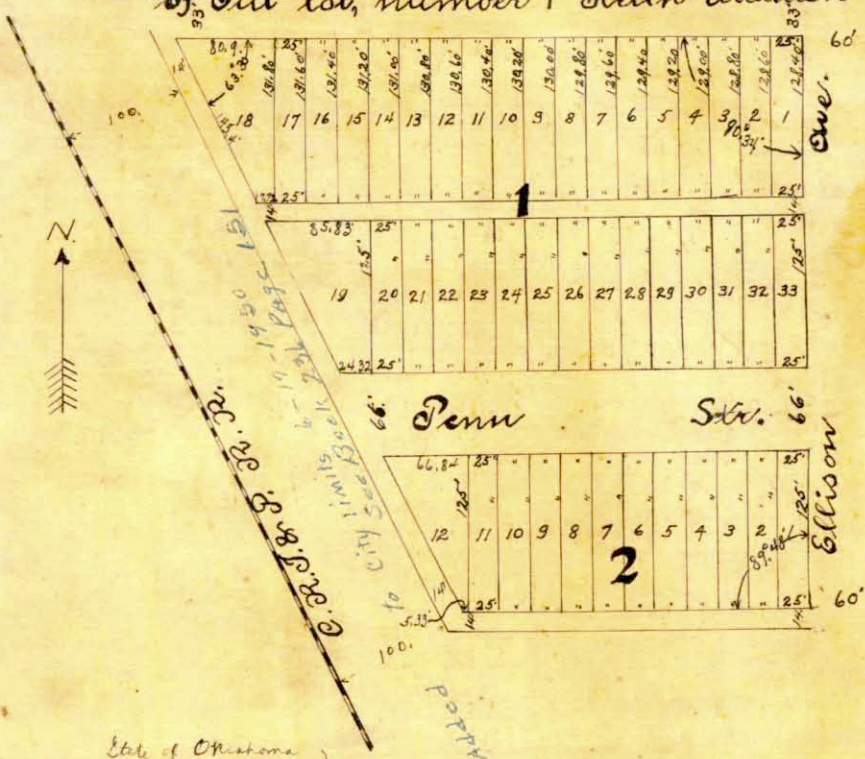 of Out lot, number 1 South Addition
33'
33'
80.9' 25' " " " " " " " " " " " " " " " 25' 60'
63°.30'
131.80' 131.60' 131.40' 131.20' 131.00' 130.80' 130.60' 130.40' 130.20' 130.00' 129.80' 129.60' 129.40' 129.20' 129.00' 128.80' 128.60' 128.40'
100.
18 17 16 15 14 13 12 11 10 9 8 7 6 5 4 3 2 1
90°.34'
Ave.
25' " " " " " " " " " " " " " " " 25'
14'
1
14'
N.
85.83' 25' " " " " " " " " " " " " 25'
125'
125'
19 20 21 22 23 24 25 26 27 28 29 30 31 32 33
24.32 25' " " " " " " " " " " " " 25'
66' Penn Str. 66'
66.84 25' " " " " " " " " " 25'
125'
125'
12 11 10 9 8 7 6 5 4 3 2 1
Ellison
89°.48'
2
14'
5.33'
25' " " " " " " " " " 25' 60'
14'
14'
100.
C. R. I. & P. R. R.
Added to City limits 6-17-1930
See Book 236 Page 151
State of Oklahoma